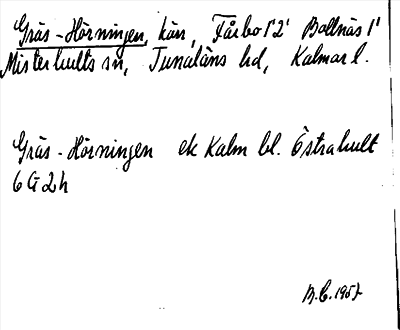 Gräs-Hörningen, kärr, Fårbo 1'2' Bollnäs 1'
Misterhults sn, Tunaläns hd, Kalmar l.
Gräs-Hörningen ek Kalm bl. Östrahult
6G2h
B.C. 1957